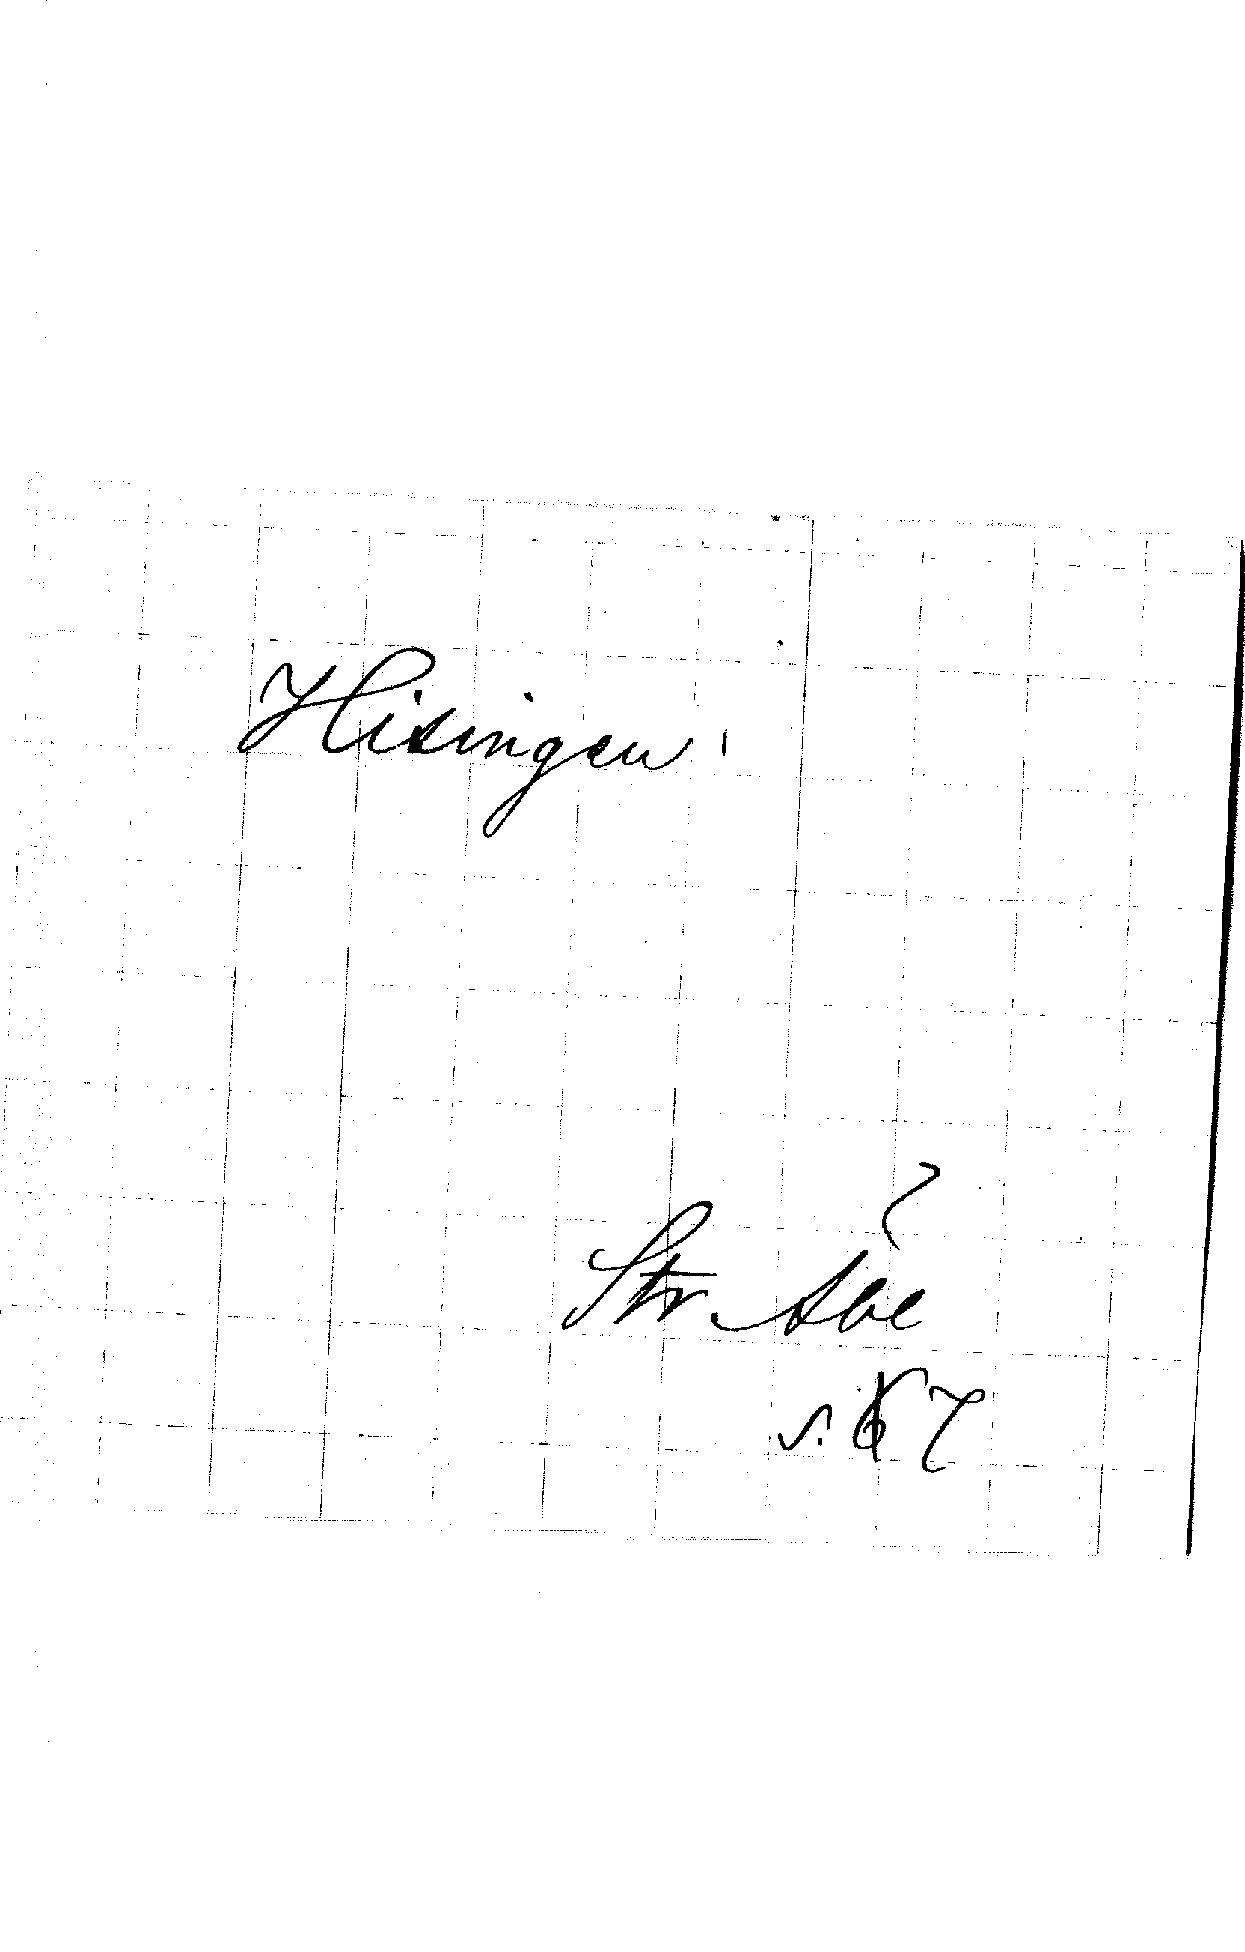 Hisingen
Str. Åbe
s. 67